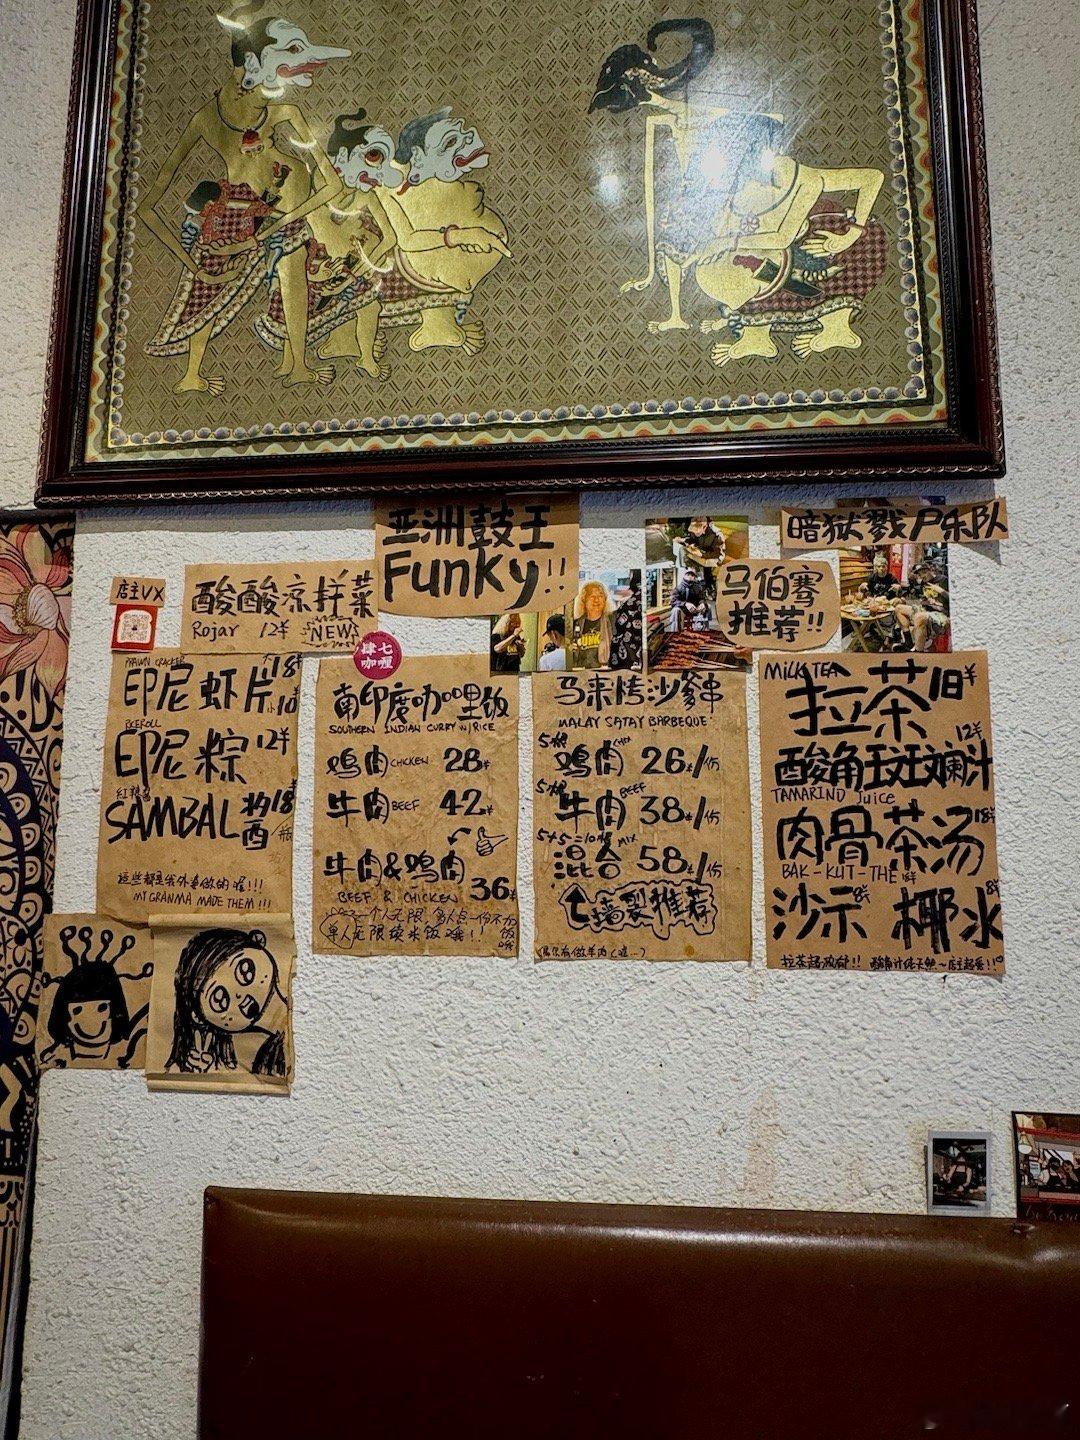 亚洲鼓王
Funky!!
暗狱戮尸乐队
马伯骞
推荐!!
店主VX
酸酸凉拌菜
Rojar 12¥ NEW
肆七
咖喱
PRAWN CRACKER
印尼虾片 大18 小10¥
印尼粽 12¥
SAMBAL 酱 18¥
这些都是我外婆做的喔!!!
MY GRANMA MADE THEM!!!
南印度咖喱饭
SOUTHERN INDIAN CURRY W/RICE
鸡肉 CHICKEN 28¥
牛肉 BEEF 42¥
牛肉&鸡肉
BEEF & CHICKEN 36¥
单人无限续米饭哦!!
马来烤沙爹串
MALAY SATAY BARBEQUE
5根 鸡肉 26¥/份
5根 牛肉 BEEF 38¥/份
5+5=10根 MIX
混合 58¥/份
墙裂推荐
MILK TEA
拉茶 18¥
酸角斑斓汁 12¥
TAMARIND Juice
肉骨茶汤 18¥
BAK-KUT-THE
沙示 8¥ 椰水 8¥
拉茶超浓郁!! 酸角汁纯天然~店主超爱!!